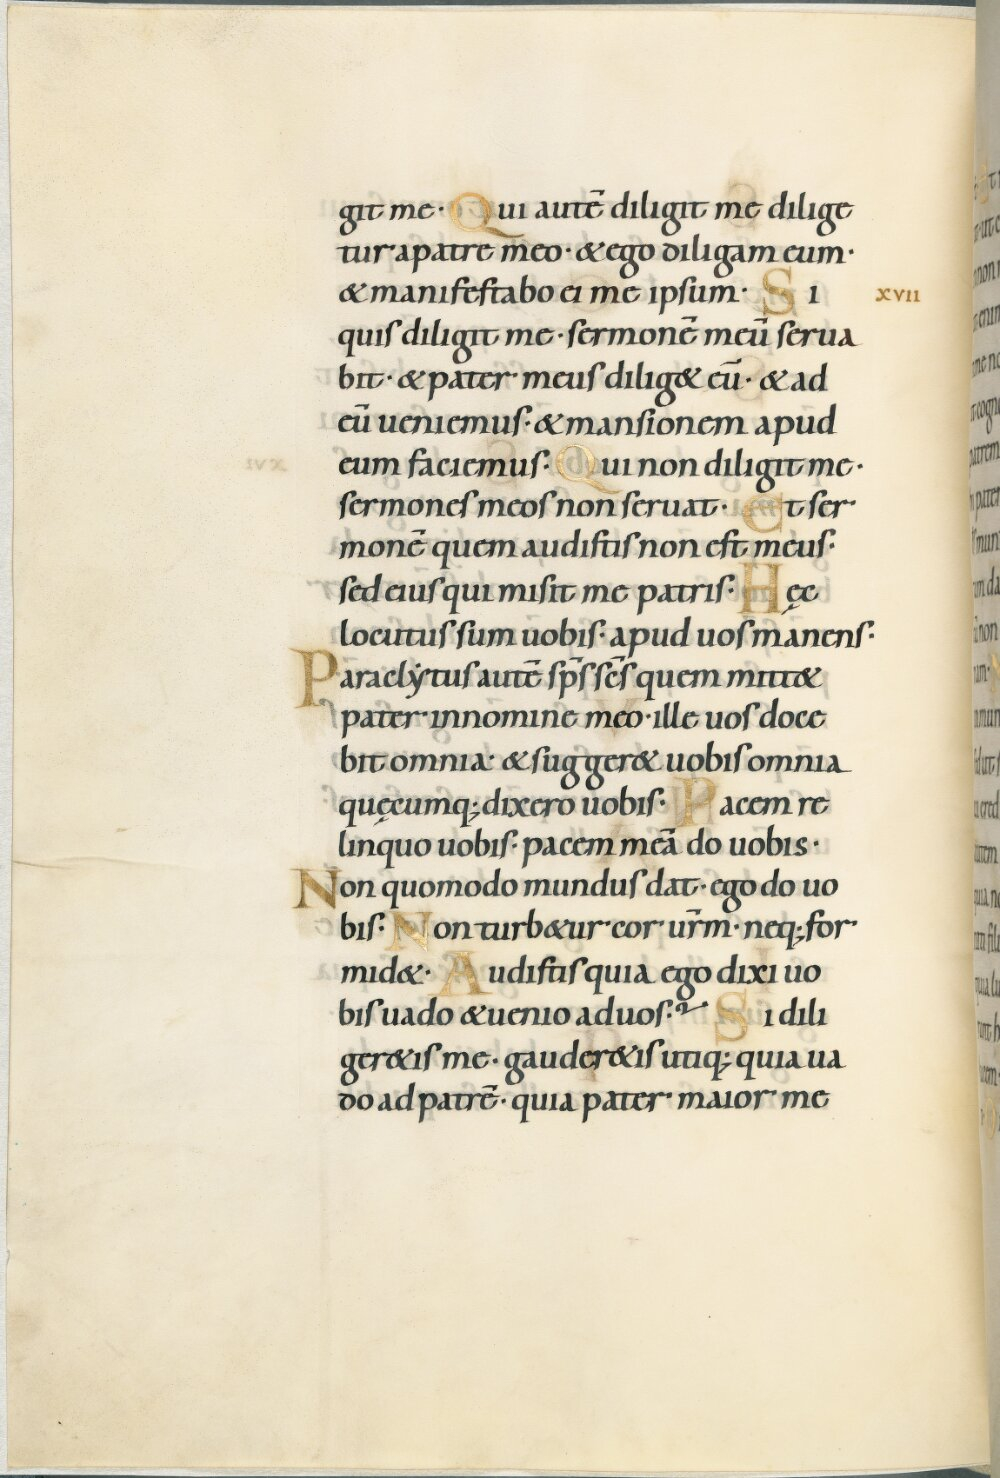 git me· Qui autē diligit me dilige
tur apatre meo· &ego diligam eum·
& manifestabo ei me ipsum· Si xvii
quis diligit me· sermonē meū serua
bit· & pater meus dilig& eū· & ad
eū ueniemus· & mansionem apud
eum faciemus· Qui non diligit me·
sermones meos non seruat· Et ser
monē quem audistis non est meus·
sed eius qui misit me patris· Hęc
locutus sum uobis· apud uos manens·
Paraclytus autē sp̄s sc̄s quem mitt&
pater innomine meo· ille uos doce
bit omnia· & sugger& uobis omnia
quęcumq; dixero uobis· Pacem re
linquo uobis· pacem meā do uobis·
Non quomodo mundus dat· ego do uo
bis· Non turb&ur cor ur̄m· neq; for
mid&· Audistis quia ego dixi uo
bis uado &uenio aduos· Si dili
ger&is me· gauder&is utiq; quia ua
do ad patrē· quia pater maior me